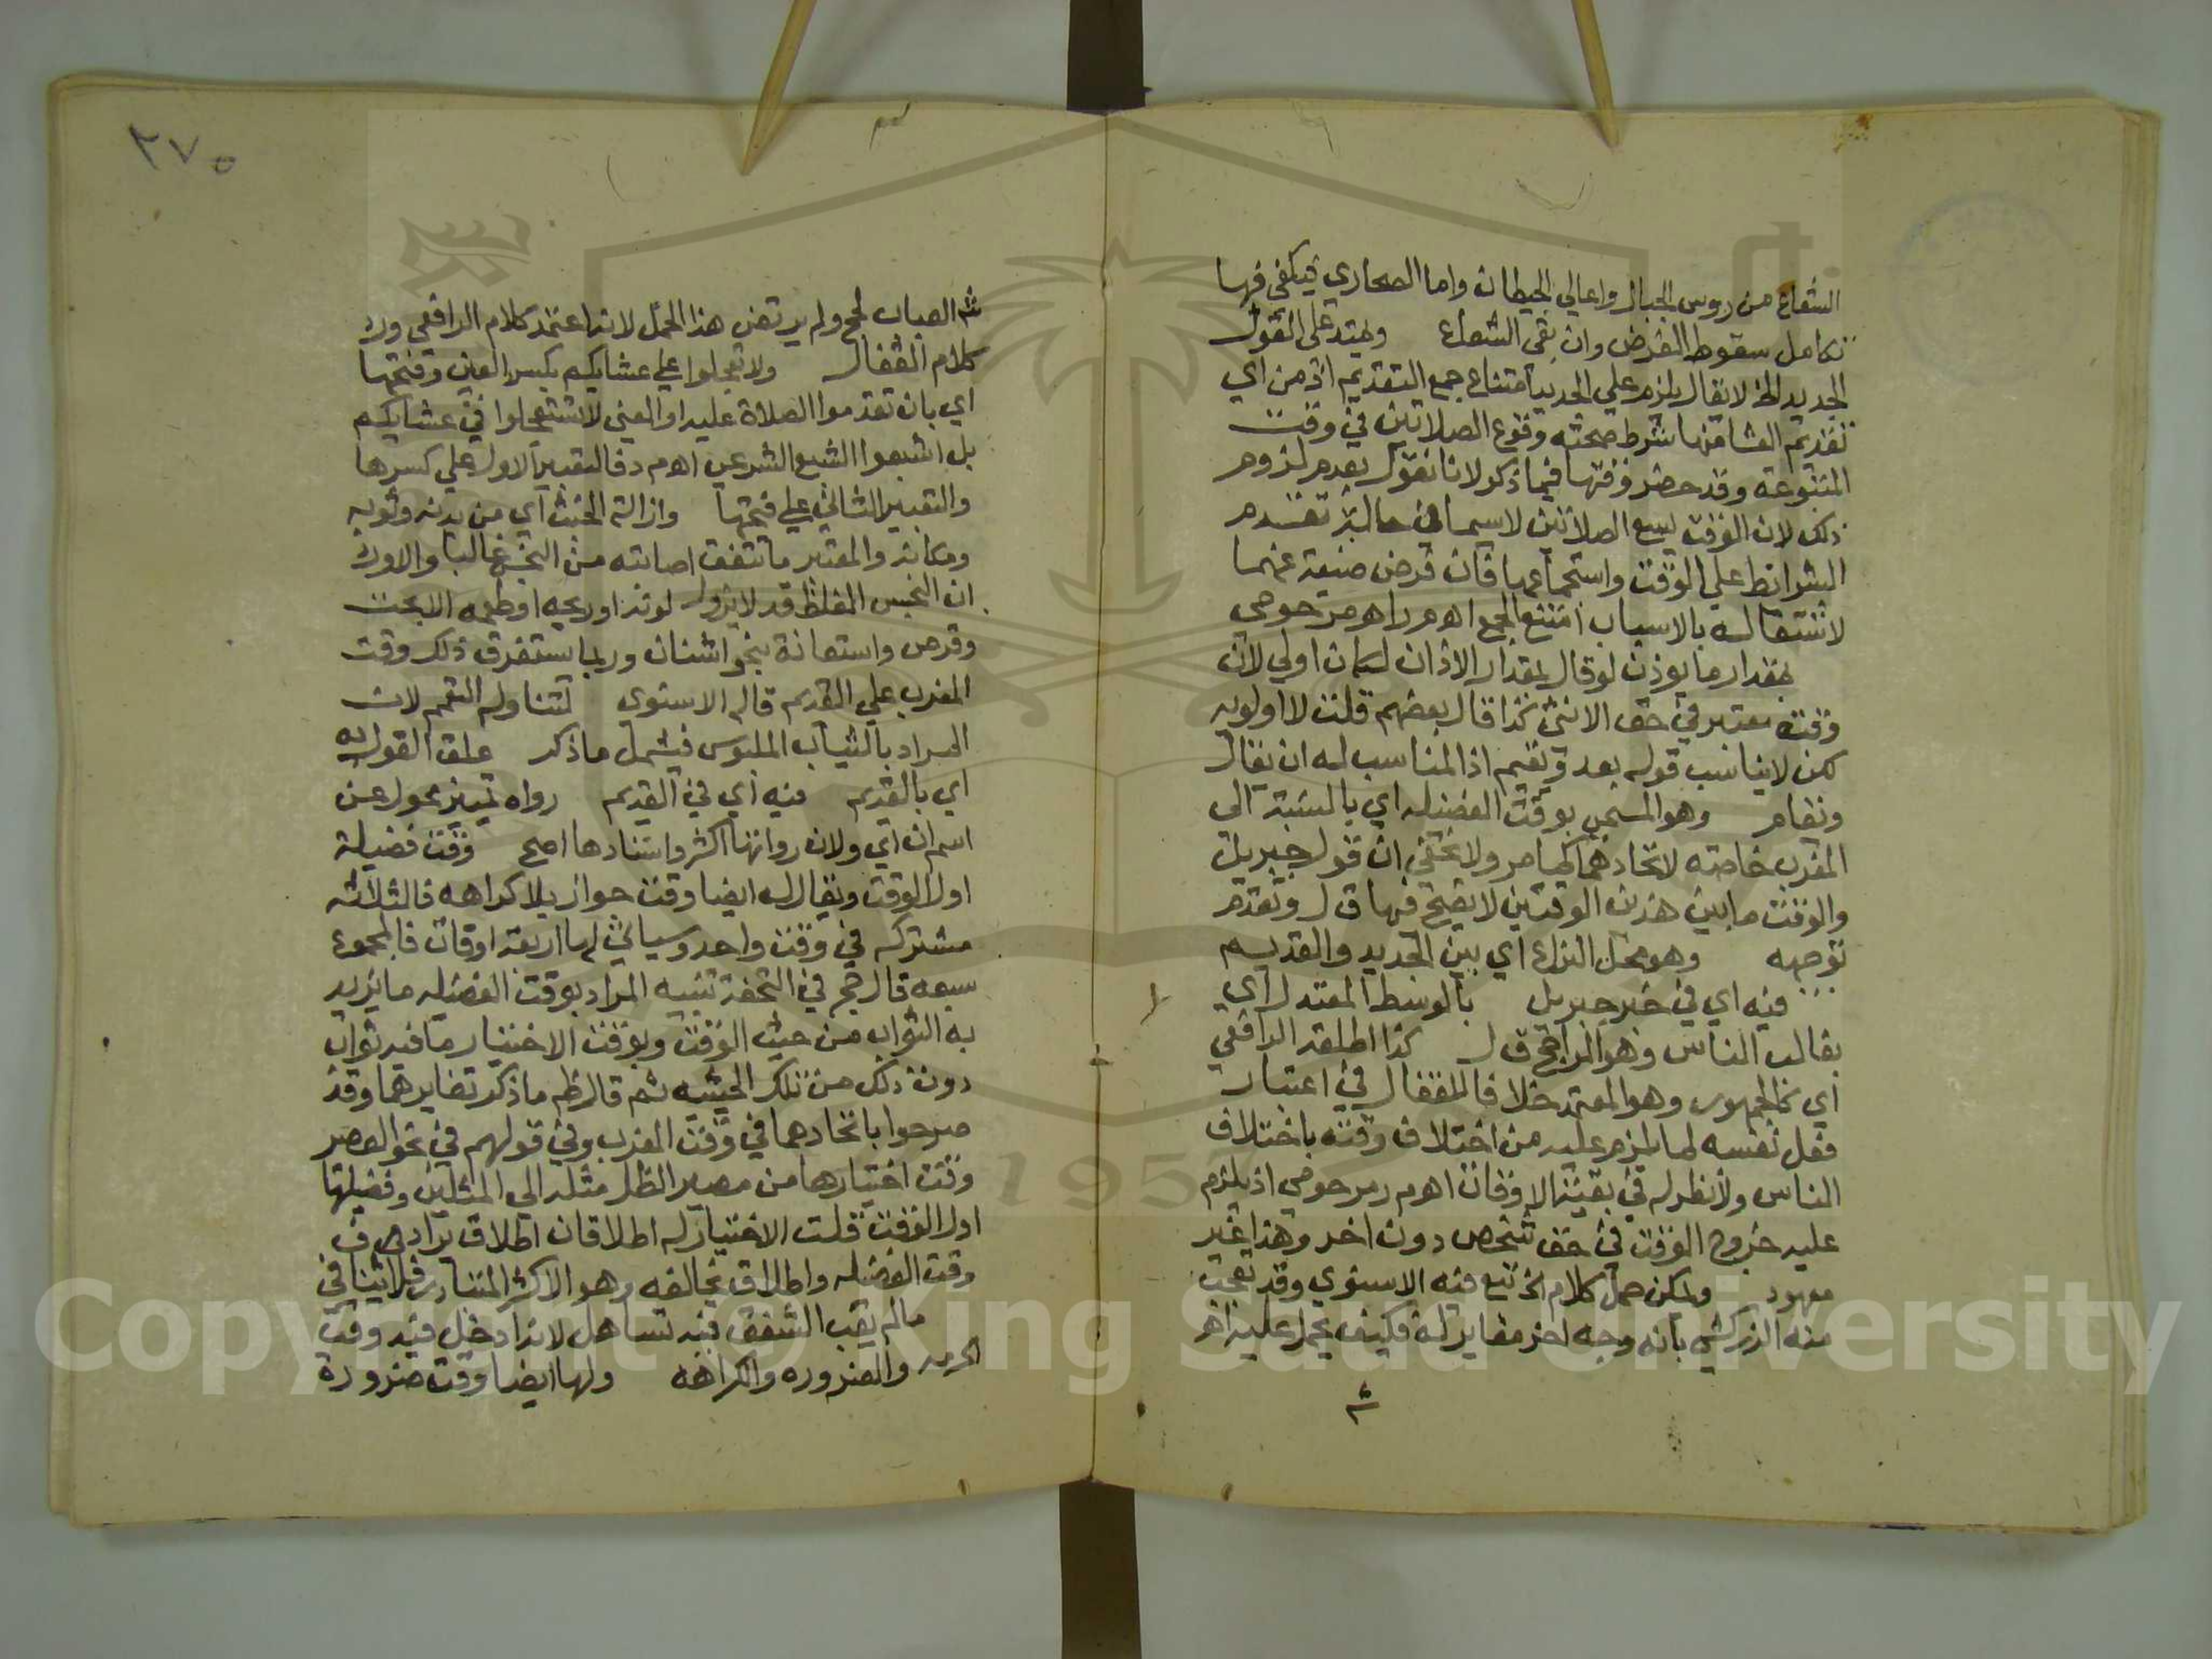 الشعاع من روس الجبال واعالي الحيطان واما الصحاري فيكفي فيها
تكامل سقوط القرص وان بقي الشعاع ويمتد على القول
الجديد الخ لا يقال يلزم علي الجديد امتناع جمع التقديم اذ من اي
تقديم العشا منها شرط صحته وقوع الصلاتين في وقت
المتبوعة وقد حصر وقتها فيما ذكر لانا نقول بعدم لزوم
ذلك لان الوقت يسع الصلاتين لاسيما في حالة تقدم
الشرائط علي الوقت واستجماعها فان فرض ضيقه عنهما
لاشتغاله بالاسباب امتنع الجمع اهم راهم مرحومي
بمقدار ما يوذن لو قال بمقدار الاذان لكان اولي لان
وقته معتبر في حق الانثى كذا قال بعضهم قلت لا اولويه
لكن لا يناسب قوله بعد ويقيم اذ المناسب له ان يقال
ويقام وهو المسمى بوقت الفضيله اي بالنسبة الى
المغرب خاصته لاتحادهما كما مر ولا يخفى ان قول جبريل
والوقت ما بين هذين الوقتين لا يصح فيها ق ل وتقدم
توجيهه وهو محل النزاع اي بين الجديد والقديم
فيه اي في خبر جبريل بالوسط المعتدل اي
بغالب الناس وهو الراجح ق ل كذا اطلقه الرافعي
اي كالجمهور وهو المعتمد خلافا للقفال في اعتبار
فعل نفسه لما يلزم عليه من اختلاف وقته باختلاف
الناس ولا نظر له في بقية الاوقات اهم رمرحومي اذ يلزم
عليه خروج الوقت في حق شخص دون اخر وهذا غير
معهود ويمكن حمل كلام الخ تبع فيه الاسنوي وقد تعجب
منه الزركشي بانه وجه اخر مغاير له فكيف يحمل عليه اهر
ش
٢٧٥
ش العباب لحج ولم يرتض هذا الحمل لانه اعتمد كلام الرافعي ورد
كلام القفال ولا تعجلوا علي عشايكم بكسر العين وفتحها
اي بان تقدموا الصلاة عليه او المعنى لا تستعجلوا في عشايكم
بل اشبعوا الشبع الشرعي اهم دفالتعبير الاول علي كسرها
والتعبير الثاني علي فتحها وازالة الخبث اي من بدنه وثوبه
ومكانه والمعتبر ما تتفق اصابته من النجس غالبا والا ورد
ان النجس المغلظ قد لا يزول لونه او ريحه او طعمه الا بحت
وقرص واستعانة بنحو اشنان وربما استغرق ذلك وقت
المغرب علي القديم قاله الاسنوى لتناوله التعمم لان
المراد بالثياب الملبوس فيشمل ما ذكر علق القول به
اي بالقديم فيه اي في القديم رواه تمييز محول عن
اسم ان اي ولان رواتها اكثر واسنادها اصح وقت فضيلة
اول الوقت ويقال له ايضا وقت جواز بلا كراهه فالثلاثه
مشتركه في وقت واحد وسياتي لها اربعة اوقات فالمجموع
سبعه قال حج في التحفة تنبيه المراد بوقت الفضيله ما يزيد
به الثواب من حيث الوقت وبوقت الاختيار ما فيه ثواب
دون ذلك من تلك الحيثيه ثم قال ظم ما ذكر تغايرهما وقد
صرحوا باتحادهما في وقت المغرب وفي قولهم في نحو العصر
وقت اختيارها من مصير الظل مثله الي المثلين وفضيلتها
اول الوقت قلت الاختيار له اطلاقان اطلاق يرادف
وقت الفضيله واطلاق يخالفه وهو الاكثر المتبادر فلا تنافي
مالم يغب الشفق فيه تساهل لانه ادخل فيه وقت
الحرمه والضروره والكراهه ولها ايضا وقت ضرورة
Copyright © King Saud University
1957